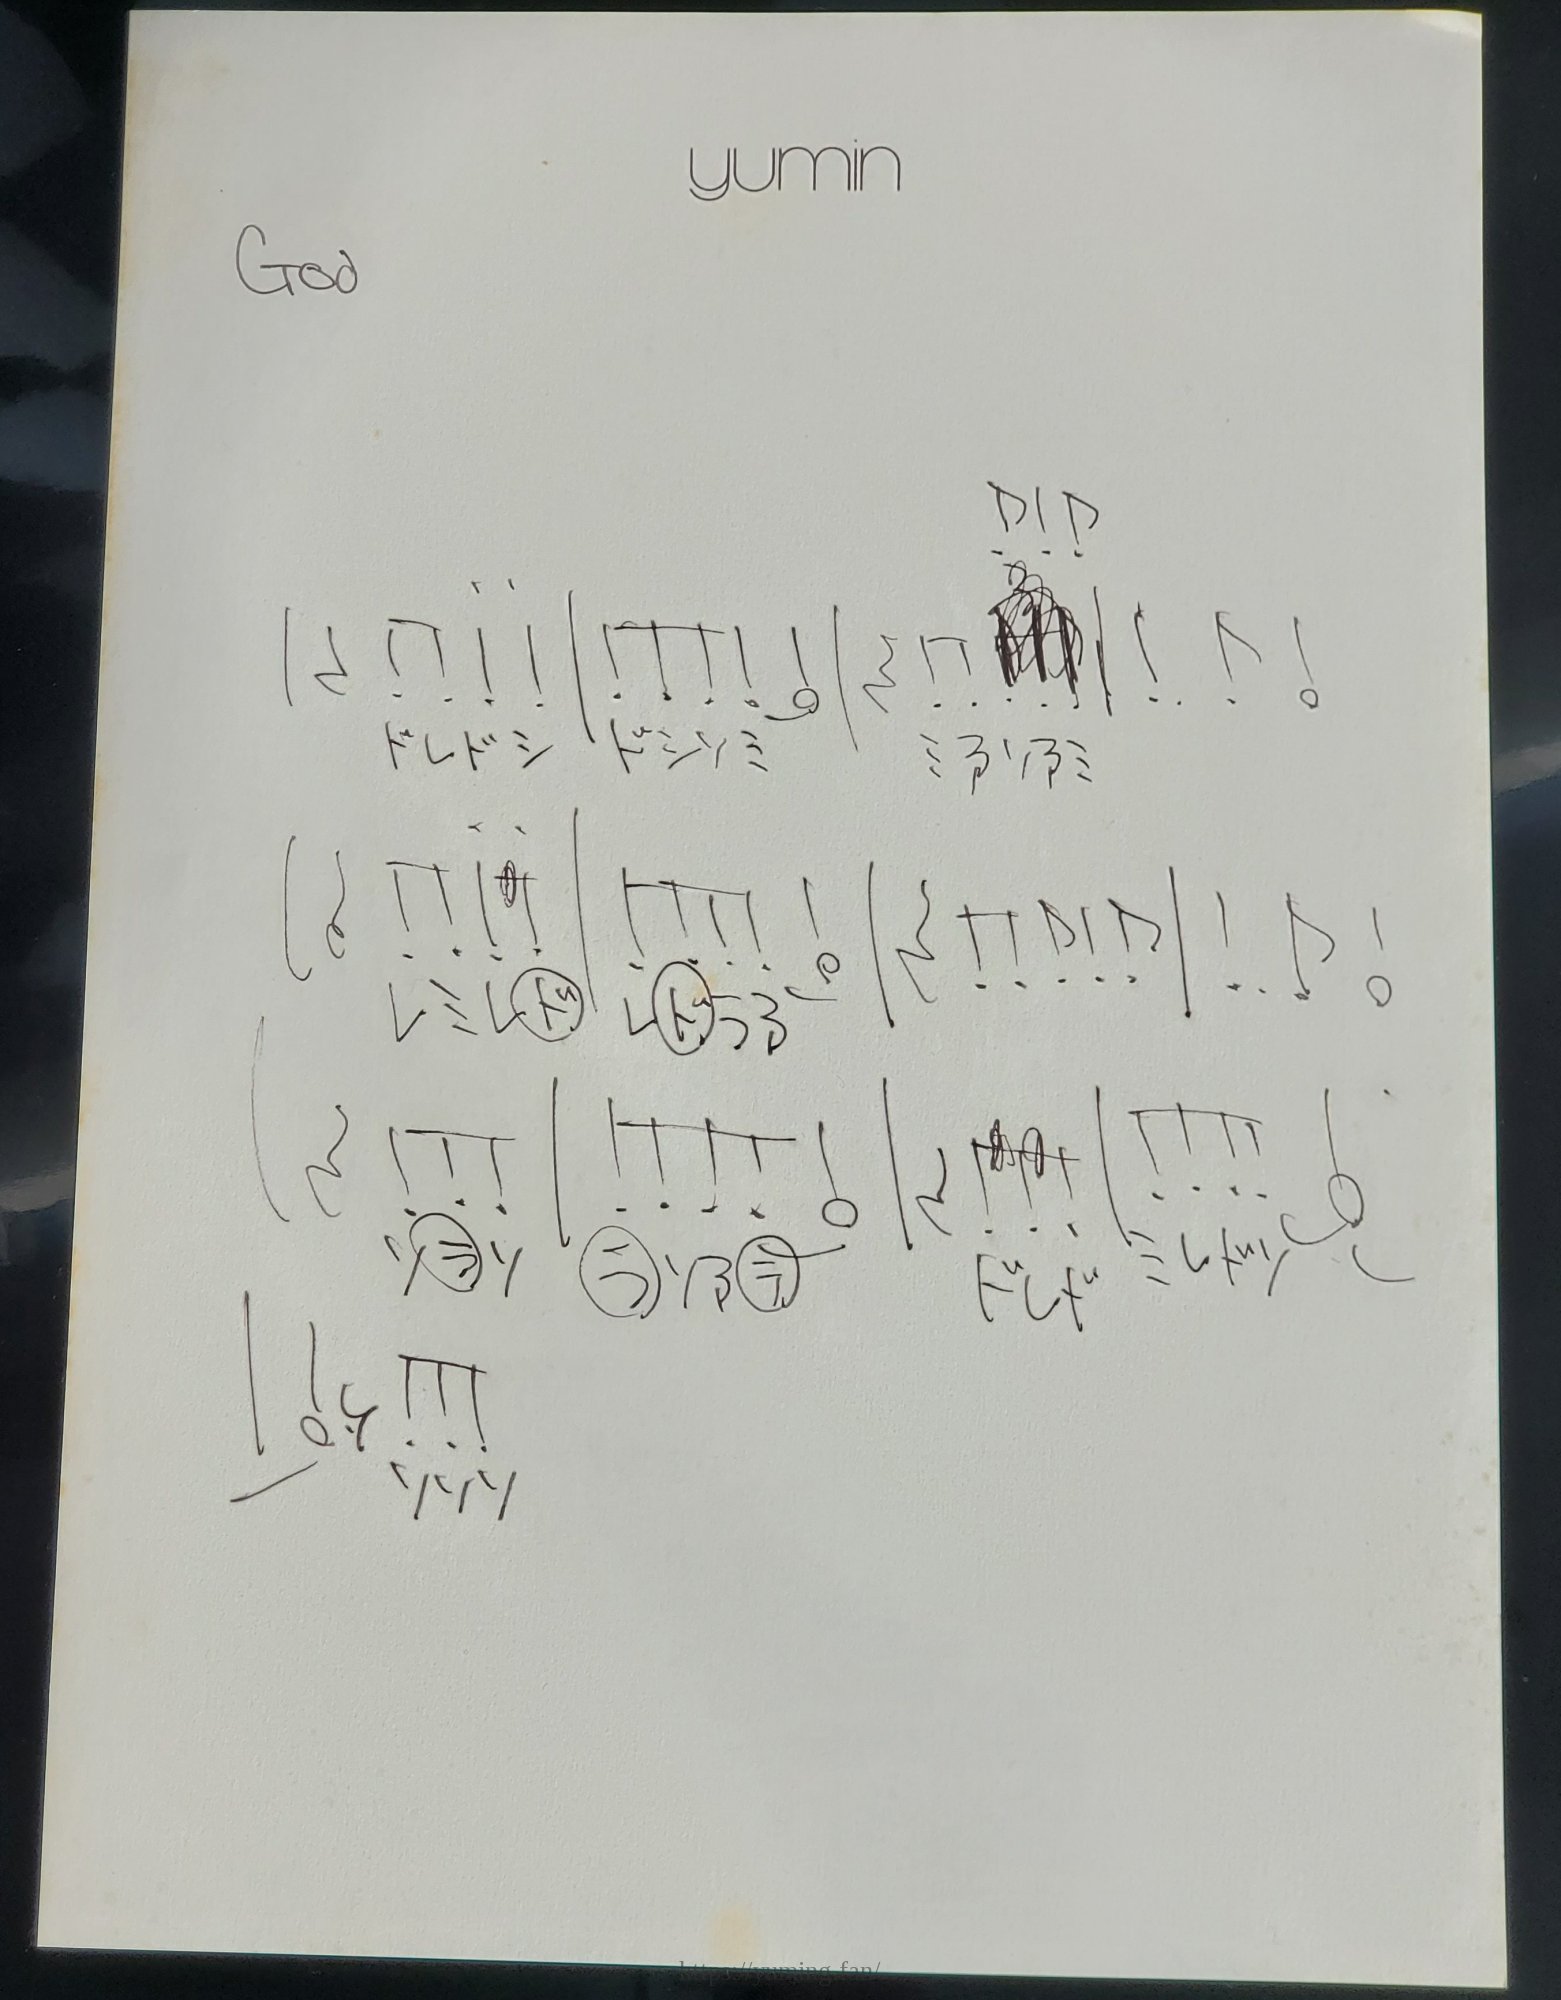 yumin
God
ドレドシ ドシソミ ミファソファミ
レミレド レドラ
ソラソ ラソファラ ドレド ミレドソ
ソソソ